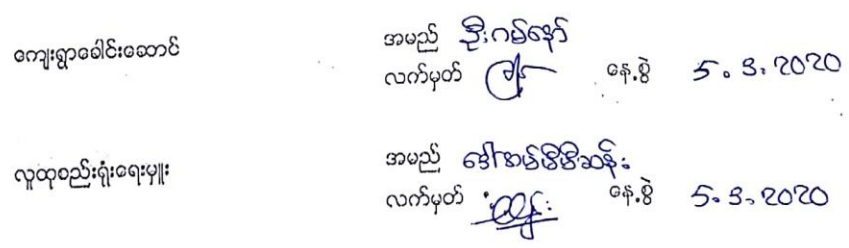 ကျေးရွာခေါင်းဆောင်
အမည် ဦးဂမ်နော်
လက်မှတ် နေ့စွဲ 5.3.2020
လူထုစည်းရုံးရေးမှူး
အမည် ဒေါ်အမ်မီမီဆန်း
လက်မှတ် နေ့စွဲ 5.3.2020